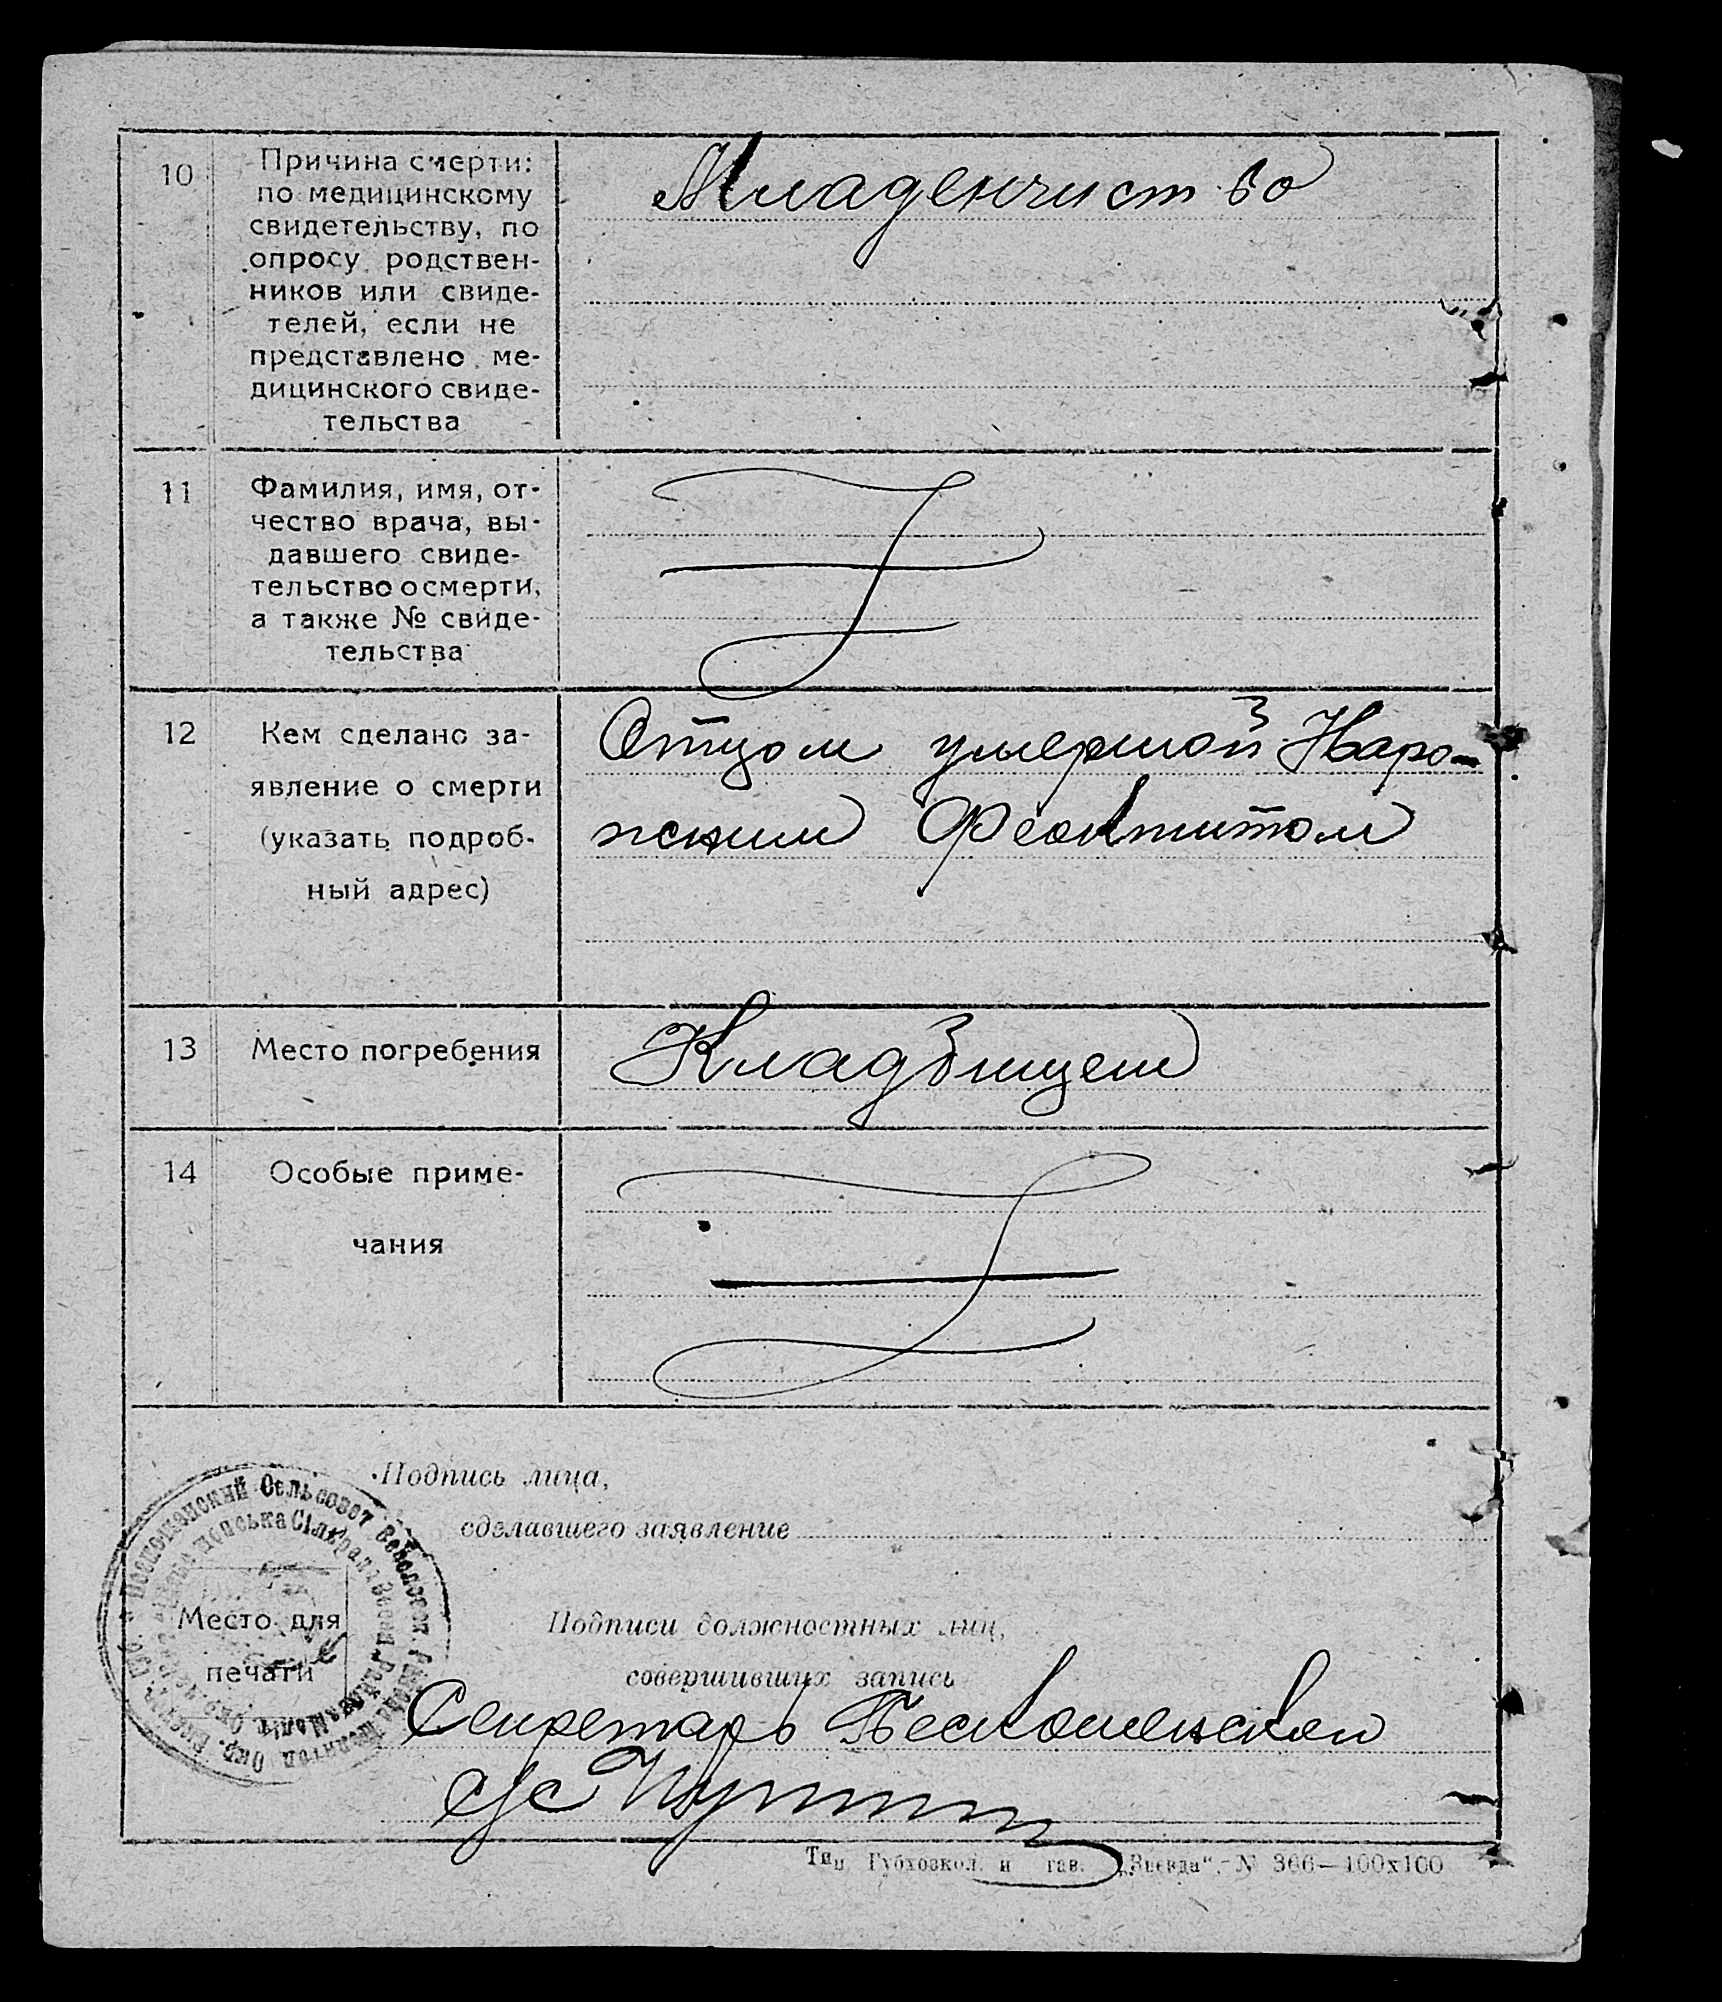 10
Причина смерти:
по медицинскому
свидетельству, по
опросу родствен-
ников или свиде-
телей, если не
представлено ме-
дицинского свиде-
тельства
Младенчист во
11
Фамилия, имя, от-
чество врача, вы-
давшего свиде-
тельство о смерти,
а также № свиде-
тельства
12
Кем сделано за-
явление о смерти
(указать подроб-
ный адрес)
Отцом умершой Наро-
жским Феоктитом
13
Место погребения
Кладбищем
14
Особые приме-
чания
Подпись лица,
сделавшего заявление
Сельсовет
Место для
печати
Подписи должностных лиц,
совершивших запись
Секретарь
с/с
Тип. Губхозкол. и „Звезда“. № 366—100х100